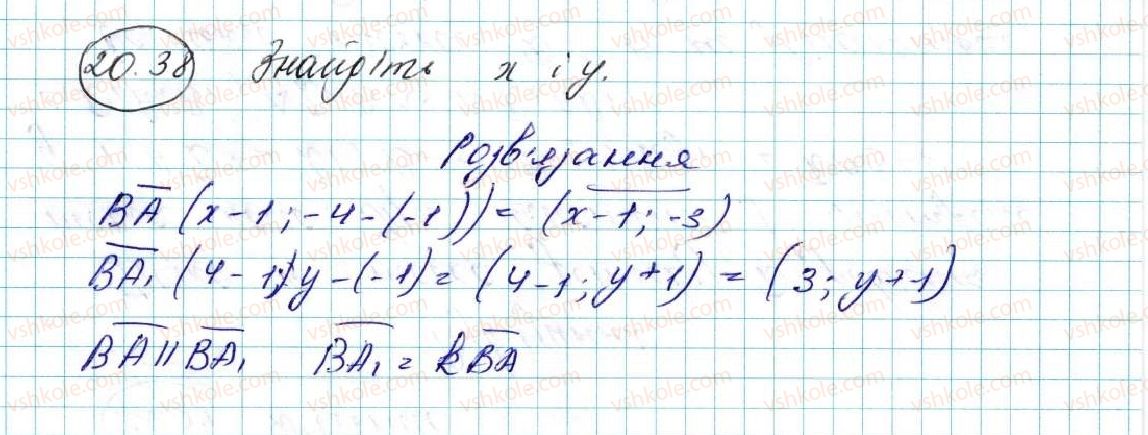 20.38 Знайдіть x і y.
Розв'язання
BA (x-1; -4-(-1)) = (x-1; -3)
BA₁ (4-1; y-(-1) = (4-1; y+1) = (3; y+1)
BA || BA₁ BA₁ = kBA